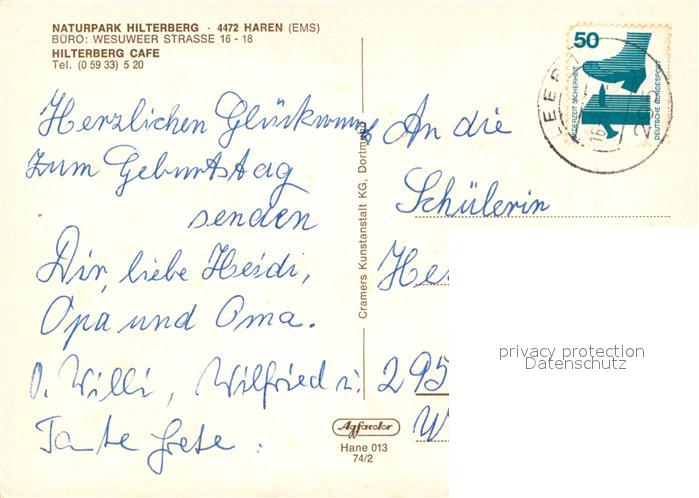 NATURPARK HILTERBERG - 4472 HAREN (EMS)
BÜRO: WESUWEER STRASSE 16 - 18
HILTERBERG CAFE
Tel. (0 59 33) 5 20
Herzlichen Glückwunsch
zum Geburtstag
senden
Dir, liebe Heidi,
Opa und Oma.
O. Willi, Wilfried u.
Tante Grete.
Cramers Kunstanstalt KG, Dortmund
Agfacolor
Hane 013
74/2
50
JEDERZEIT SICHERHEIT
DEUTSCHE BUNDESPOST
An die
Schülerin
He
295
W
privacy protection
Datenschutz